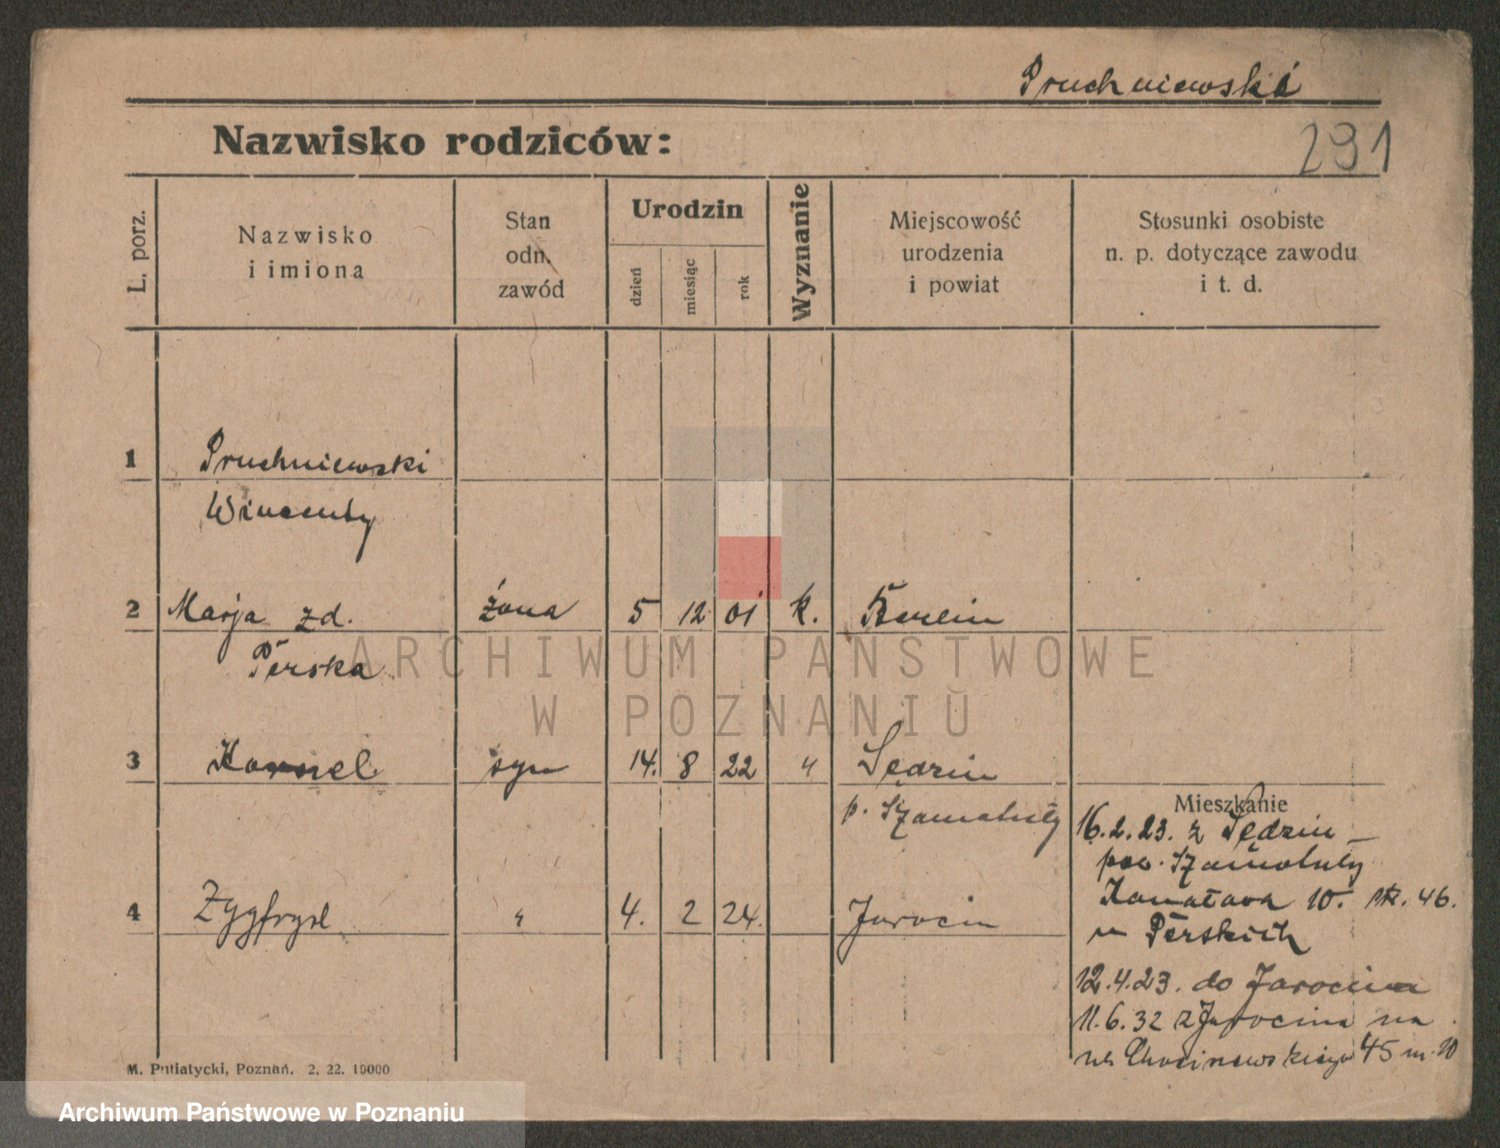 Pruchniewski
Nazwisko rodziców:
291
L. porz.
Nazwisko
i imiona
Stan
odn.
zawód
Urodzin
dzień
miesiąc
rok
Wyznanie
Miejscowość
urodzenia
i powiat
Stosunki osobiste
n. p. dotyczące zawodu
i t. d.
1 Pruchniewski
Wincenty
2 Marja zd. żona 5 12 01 k. Berlin
Perska
3 Kornel syn 14. 8 22 " Sędzin
p. Szamotuły
Mieszkanie
16.2.23. z Sędzin
pow. Szamotuły
4 Zygfryd " 4. 2 24. Jarocin
10. 46.
u Perskich
12.4.23. do Jarocina
11.6.32 z Jarocina na
ul. 45 m. 10
M. Putiatycki, Poznań. 2. 22. 10000
ARCHIWUM PAŃSTWOWE
W POZNANIU
Archiwum Państwowe w Poznaniu